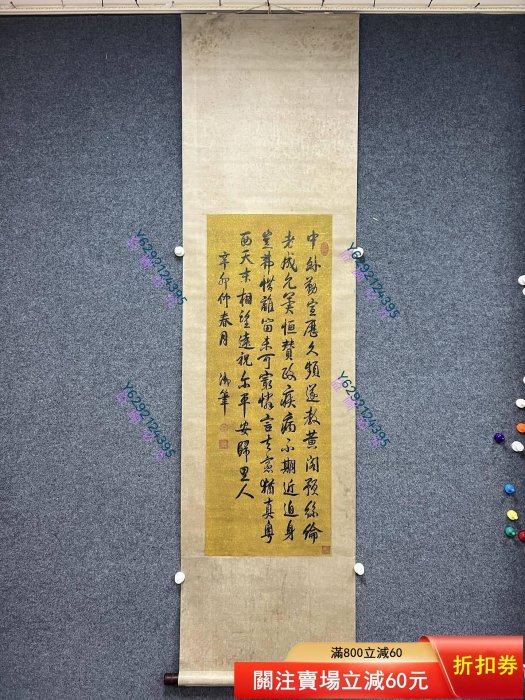 中外勤宣歷久頻遂教黃閣預絲綸
老成允冀恒贊政疾病不期近迫身
豈弗惜離留未可寧憐言去意猶真粵
西天末相望遠祝爾平安歸里人
辛卯仲春月 御筆
Y6292124395
Y6292124395
Y6292124395
Y6292124395
滿800立減60
關注賣場立減60元
折扣券